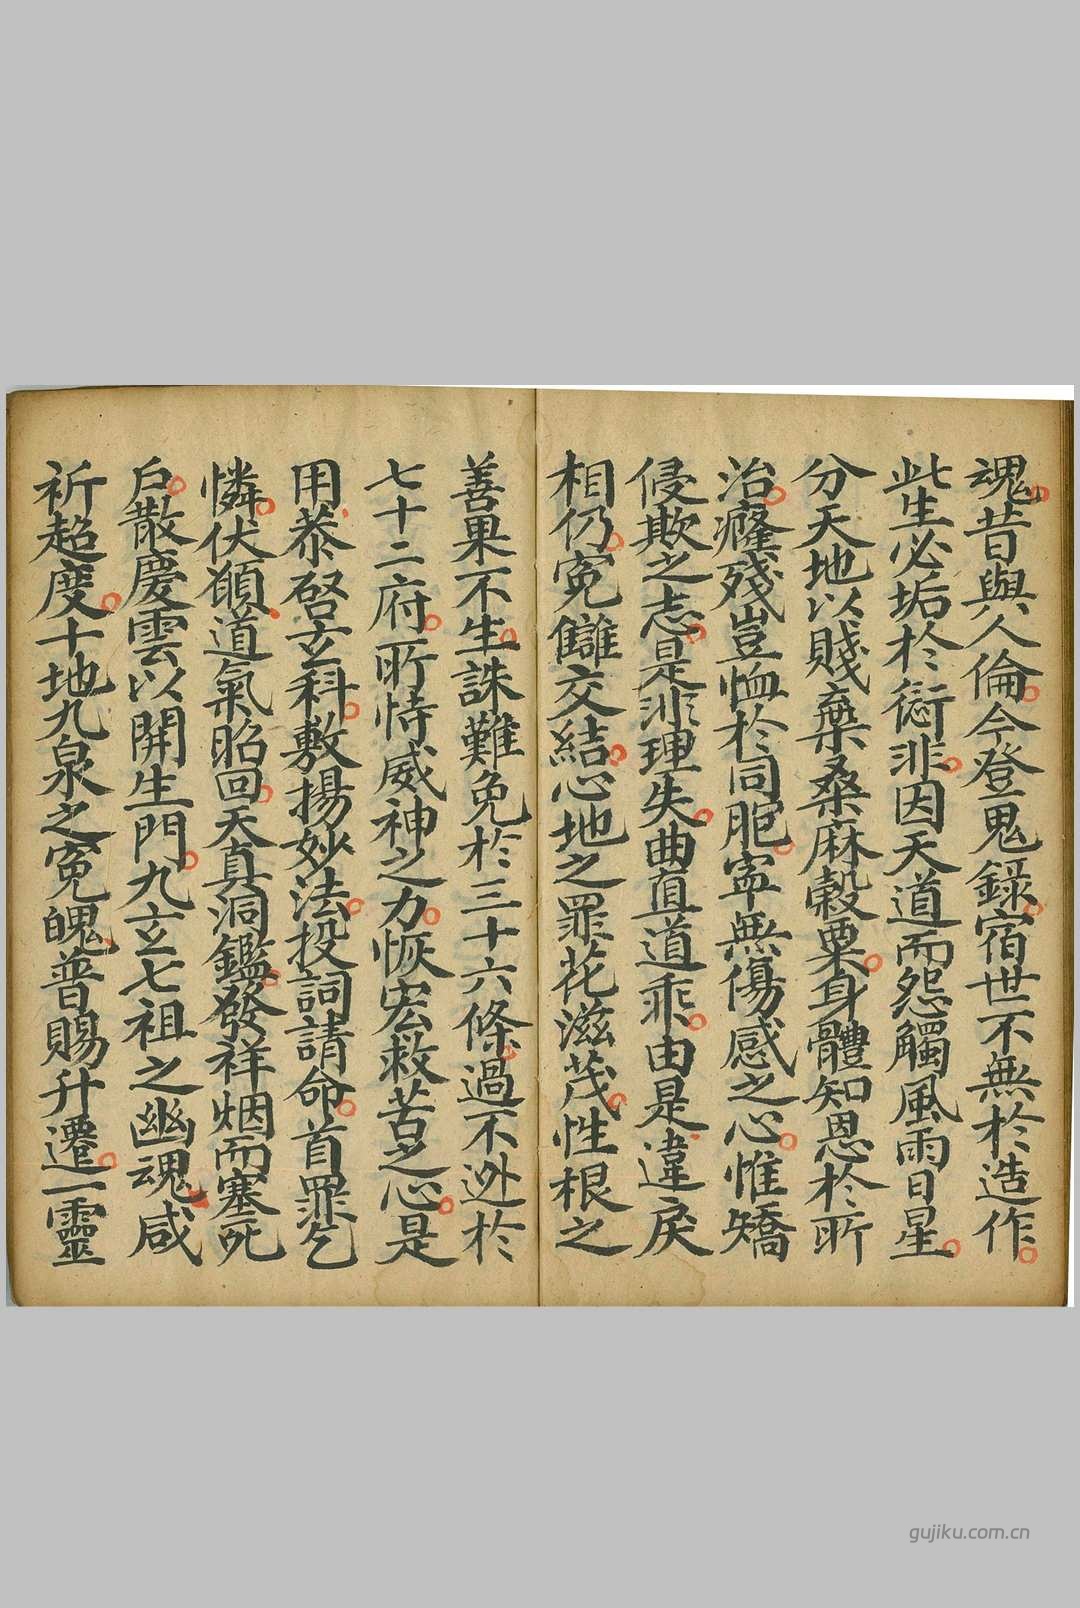 魂昔與人倫今登鬼錄宿世不無於造作
此生必垢於愆非因天道而怨觸風雨日星
分天地以賤棄桑麻榖粟身體知恩於所
治癃殘豈恤於同胞寜無傷感之心惟矯
侵欺之志是非理失曲直道乖由是違戾
相仍寃讎交結心地之罪花滋茂性根之
善果不生誅難免於三十六條過不迯於
七十二府所恃威神之力恢宏救苦之心是
用恭啓玄科敷揚妙法投詞請命首罪乞
憐伏願道氣昭回天真洞鑑發祥烟而塞死
戶散慶雲以開生門九玄七祖之幽魂咸
祈超度十地九泉之寃魄普賜升遷一靈
gujiku.com.cn